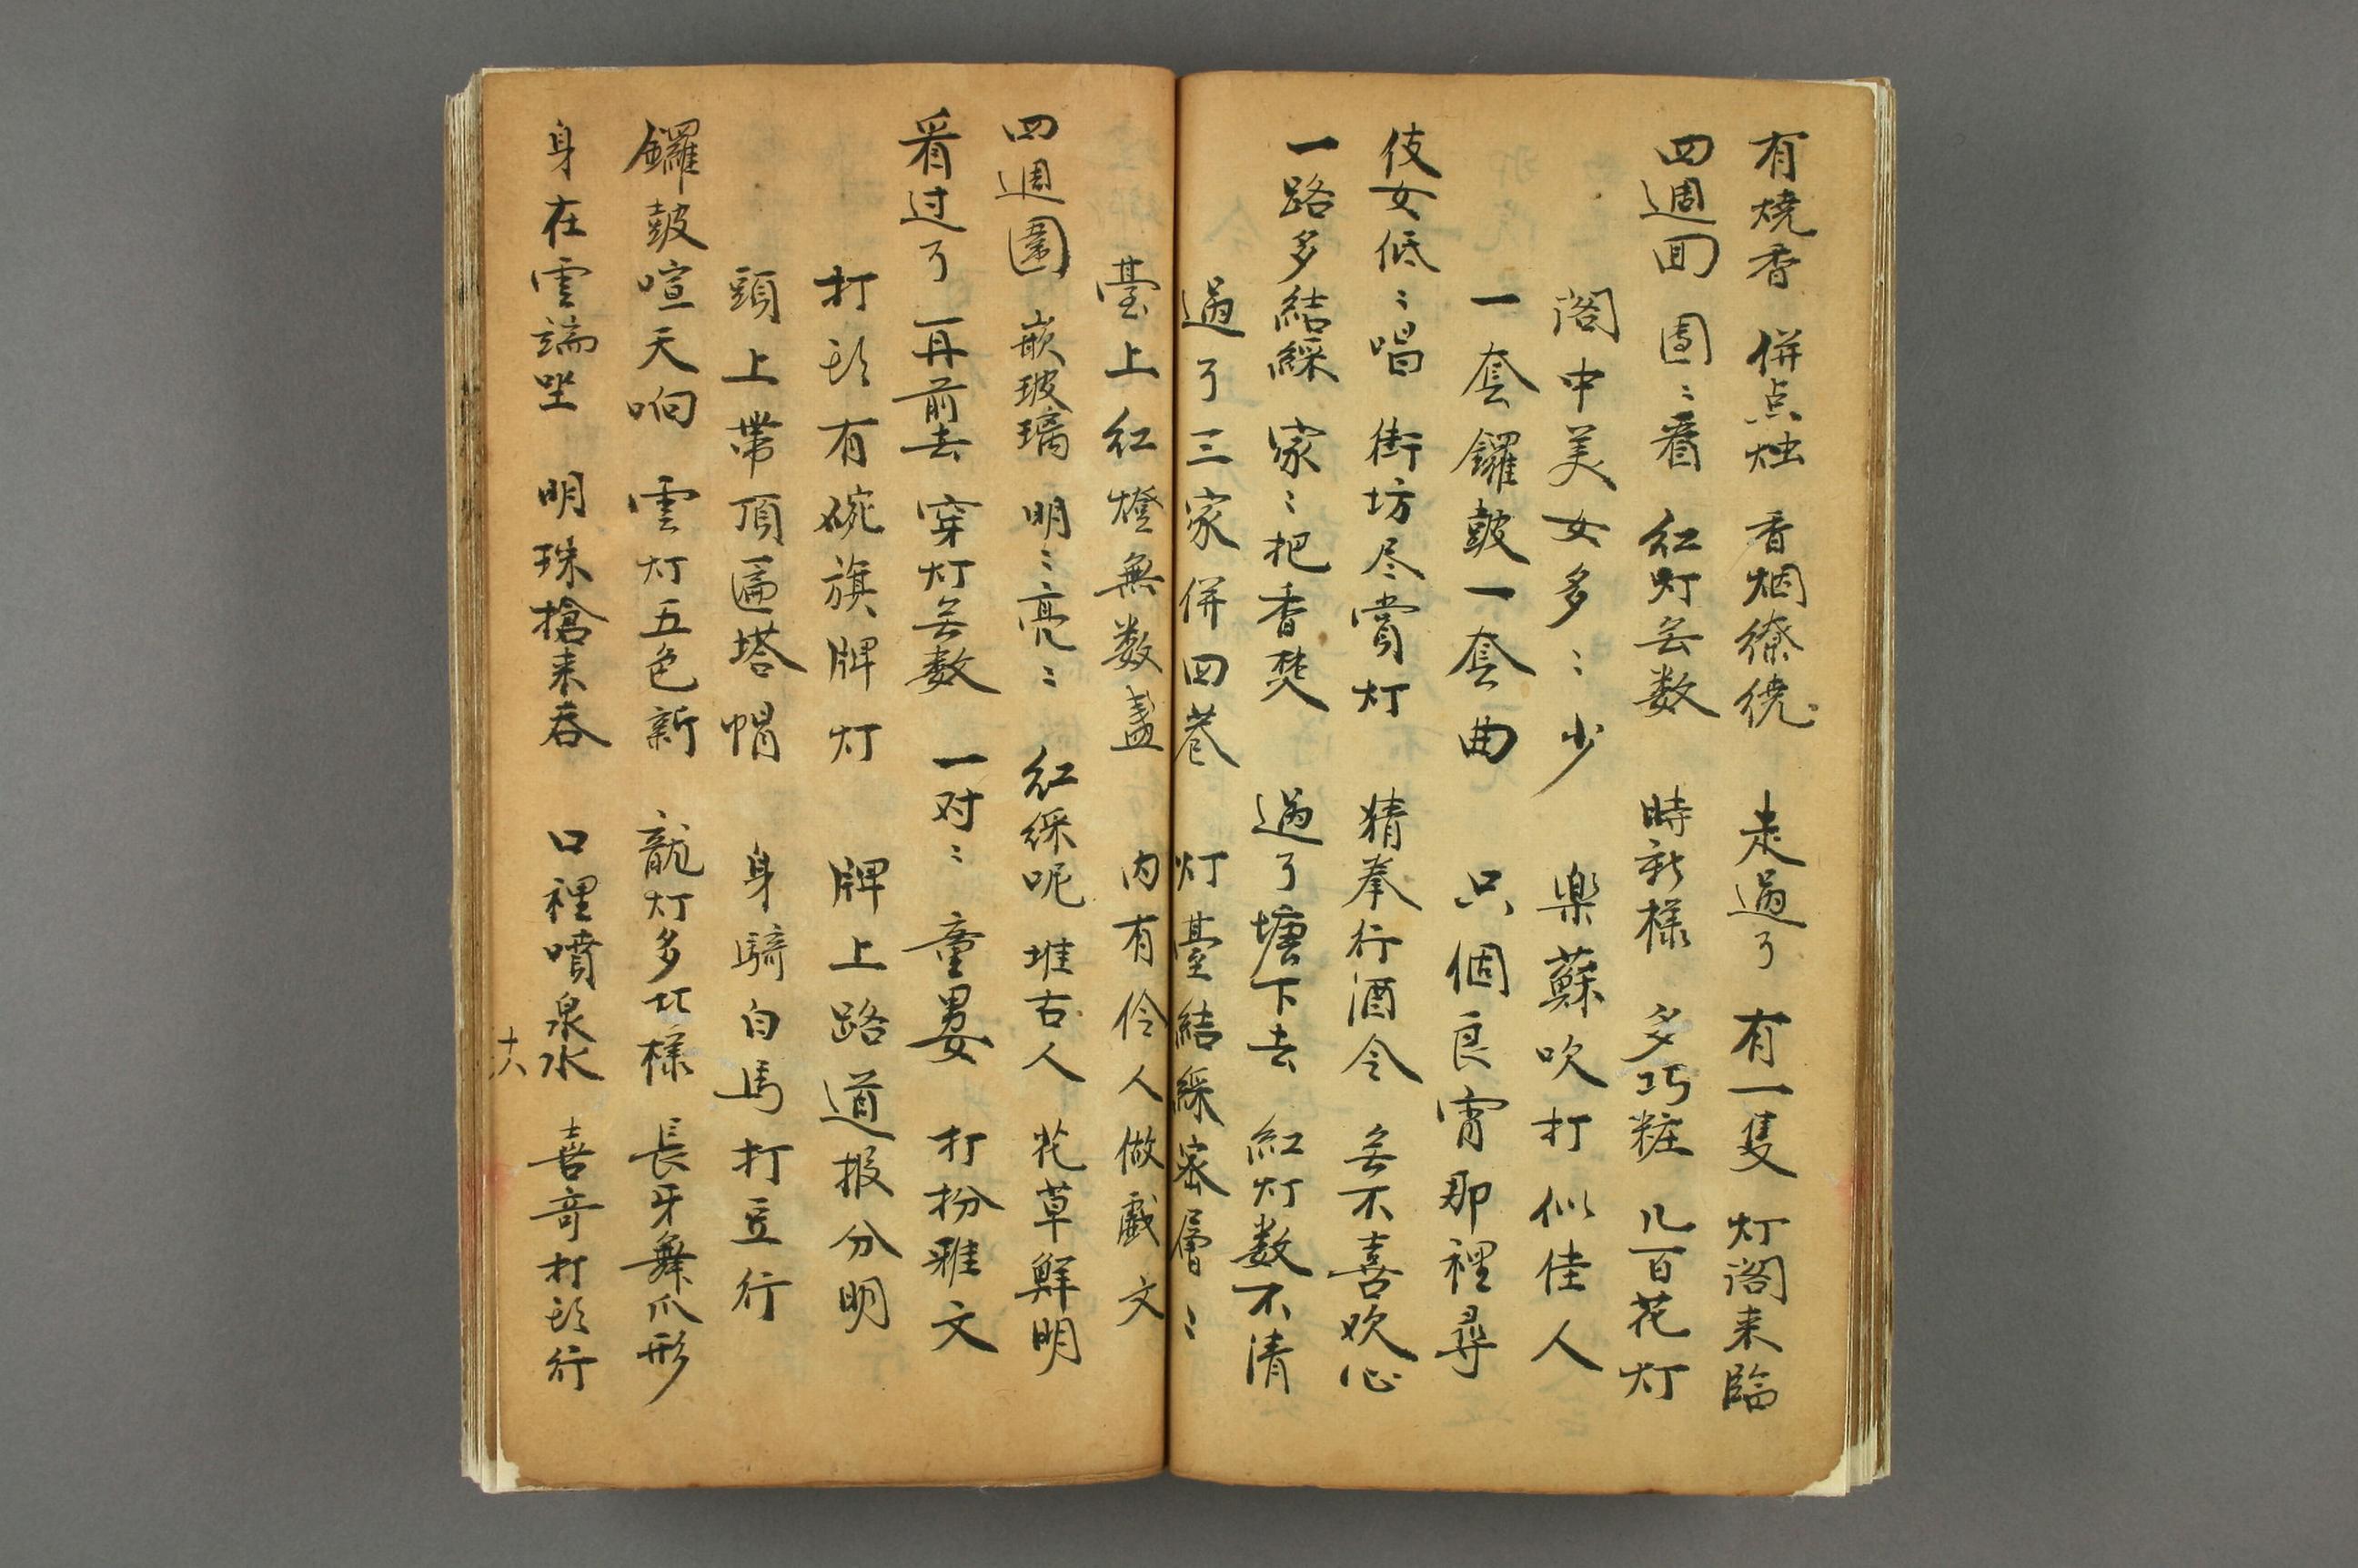 有燒香 併点烛 香烟繚繞 走過了 有一隻 灯阁来臨
四週囬 團〻看 红灯无数 時新樣 多巧粧 几百花灯
阁中美女多〻少 樂蘇吹打似佳人
一套鑼鼓一套曲 只個良宵那裡尋
伎女低〻唱 街坊尽賞灯 猜拳行酒令 无不喜欢心
一路多結綵 家〻把香焚 過了塘下去 紅灯数不清
過了三家併四巷 灯臺結綵密層〻
臺上红燈無数盞 内有伶人做戲文
四週圍 嵌玻璃 明〻亮〻 红綵呢 堆古人 花草鮮明
看过了 再前去 穿灯无数 一对〻 童男女 打扮雅文
打頭有硴旗牌灯 牌上路道报分明
頭上帶頂匾塔帽 身騎白馬打豆行
鑼鼓喧天响 雲灯五色新 龍灯多式樣 長牙舞爪形
身在雲端坐 明珠搶来吞 口裡噴泉水 喜奇打頭行
十六